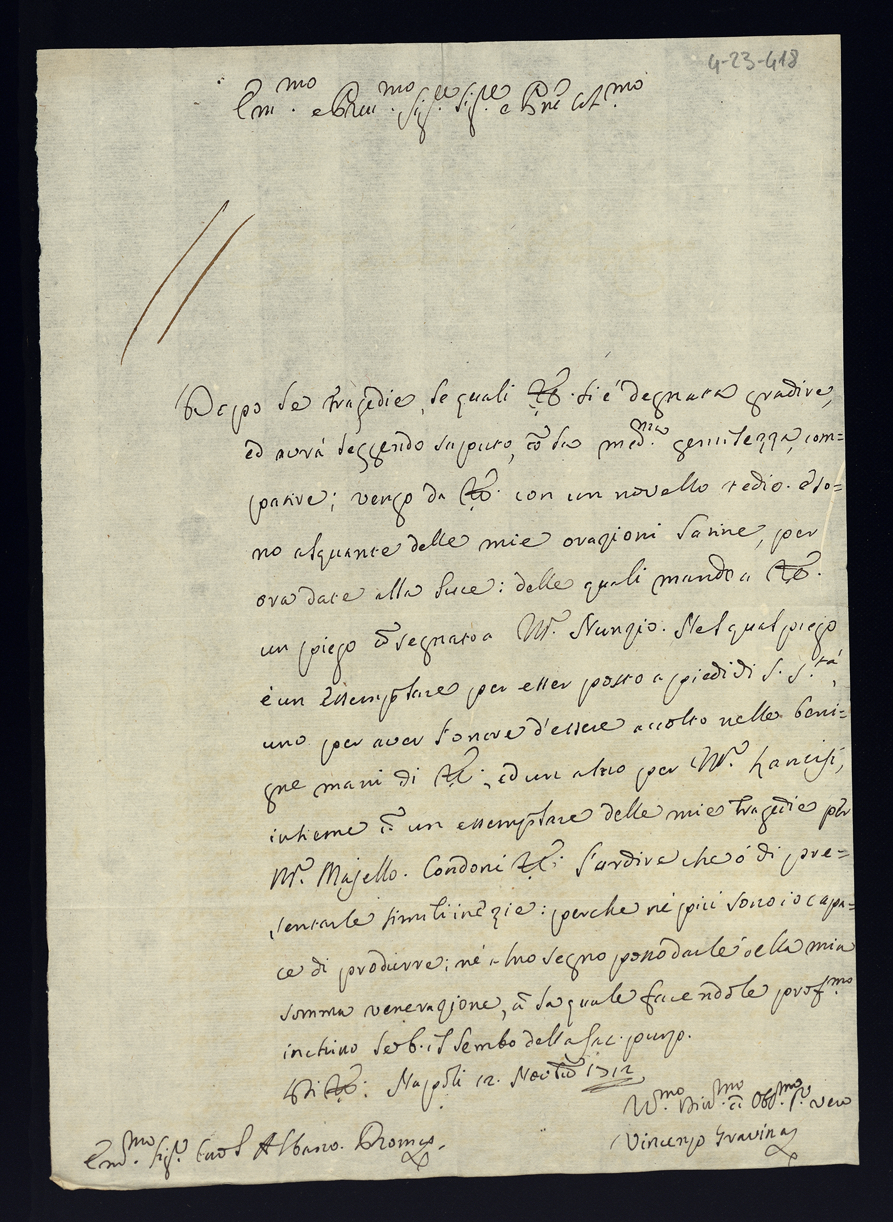 4-23-418
Em.mo e Rev.mo Sig.re Sig.re e Pne
Dopo le tragedie, le quali V.E. si é degnata gradire,
ed avrá leggendo saputo, cõ la med.ma gentilezza, com=
patire; vengo da V.E. con un novello tedio. e so=
no alquante delle mie orazioni latine, per
ora date alla luce: delle quali mando a V.E.
un piego cõsegnato a M.r Nunzio. Nel qual piego
é un essemplare per esser posto a piedi di S. S.tá,
uno per aver l'onore d'essere accolto nelle beni=
gne mani di V.E.; ed un altro per M.r Lancisi,
insieme cõ un essemplare delle mie tragedie per
M.r Majello. Condoni V.E. l'ardire che ó di pre=
sentarle simili inezie: perche né piú sono io capa=
ce di produrre; né altro segno posso darle della mia
somma venerazione, cõ la quale facendole prof.mo
inchino le b. il lembo della sac. purp.
Di V.E. Napoli 12. 1712
V.mo Div.mo ed Obb.mo S.r vero
Vincenzo Gravina
Em.mo Sig.r Card. Albano. Roma.